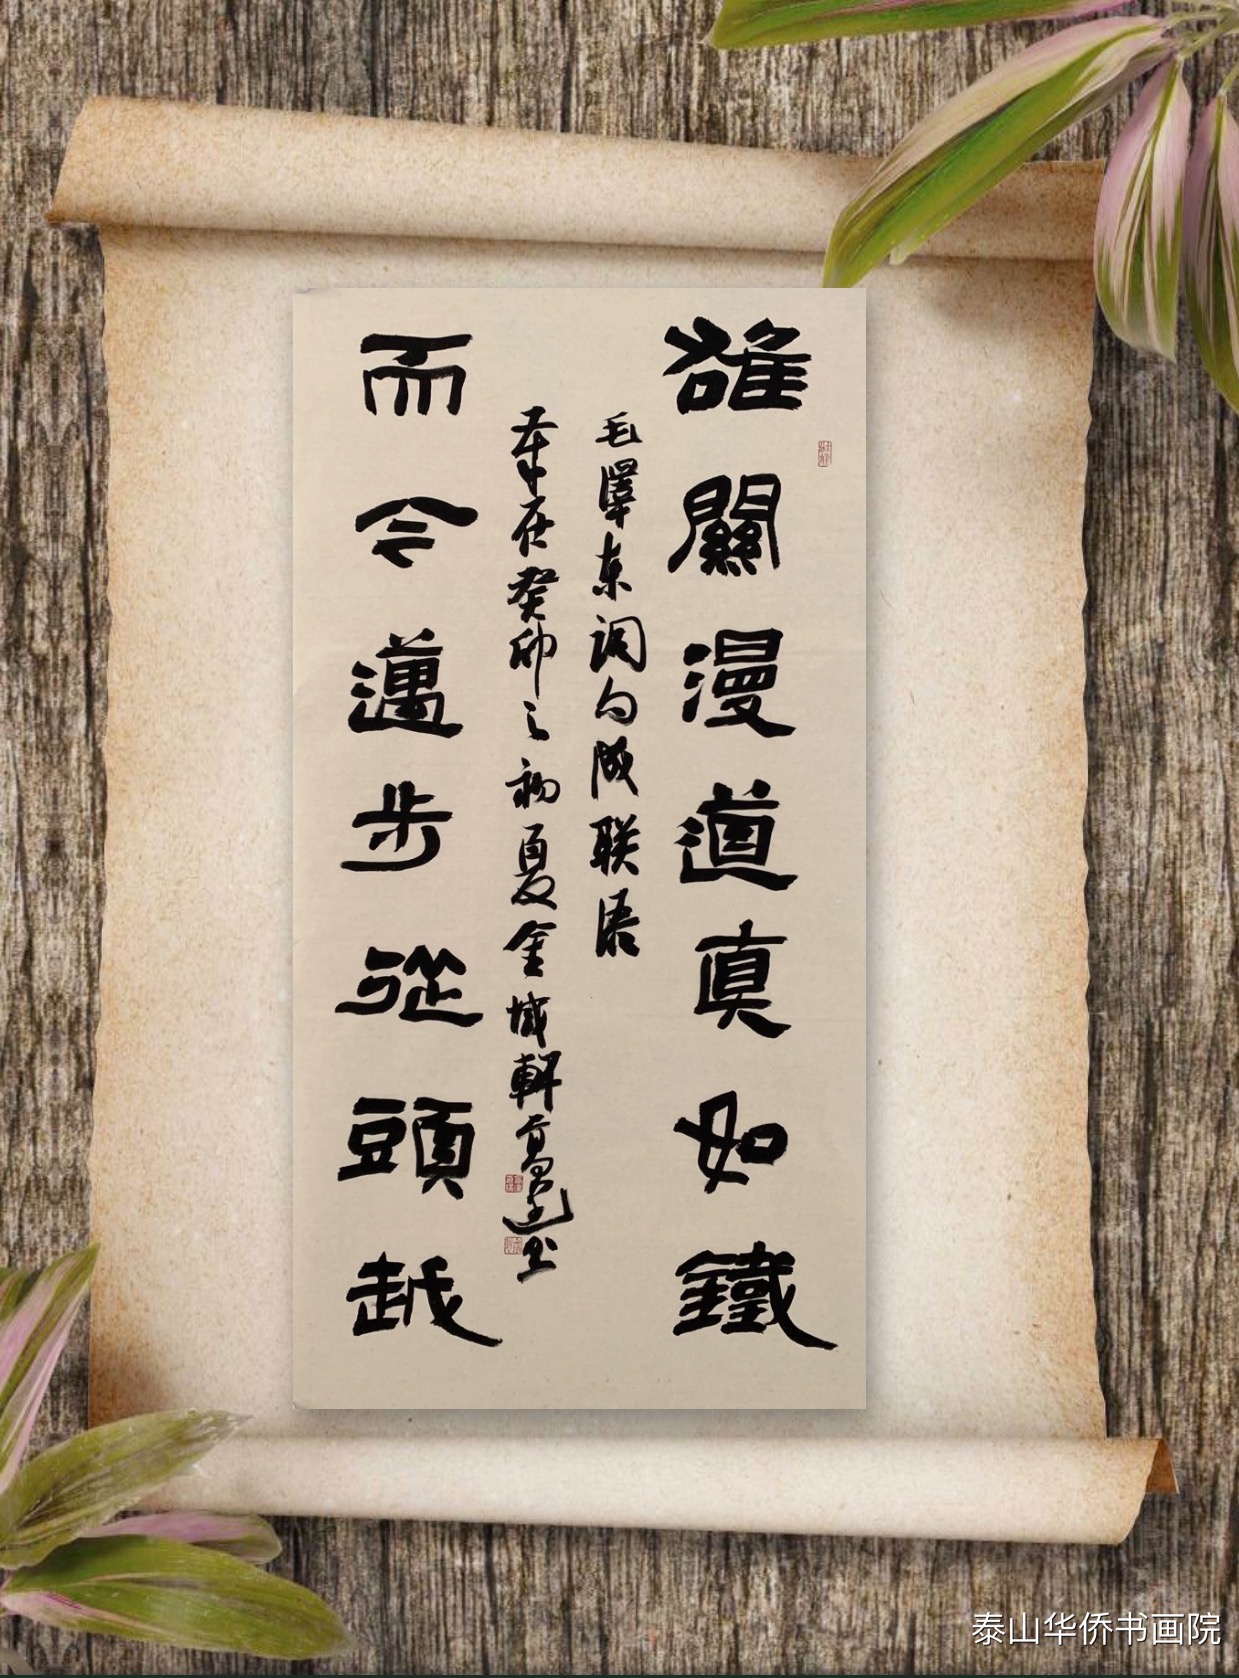 雄關漫道真如鐵
毛澤東词句 联语
在癸卯之初夏金城軒 书
而今邁步從頭越
泰山华侨书画院